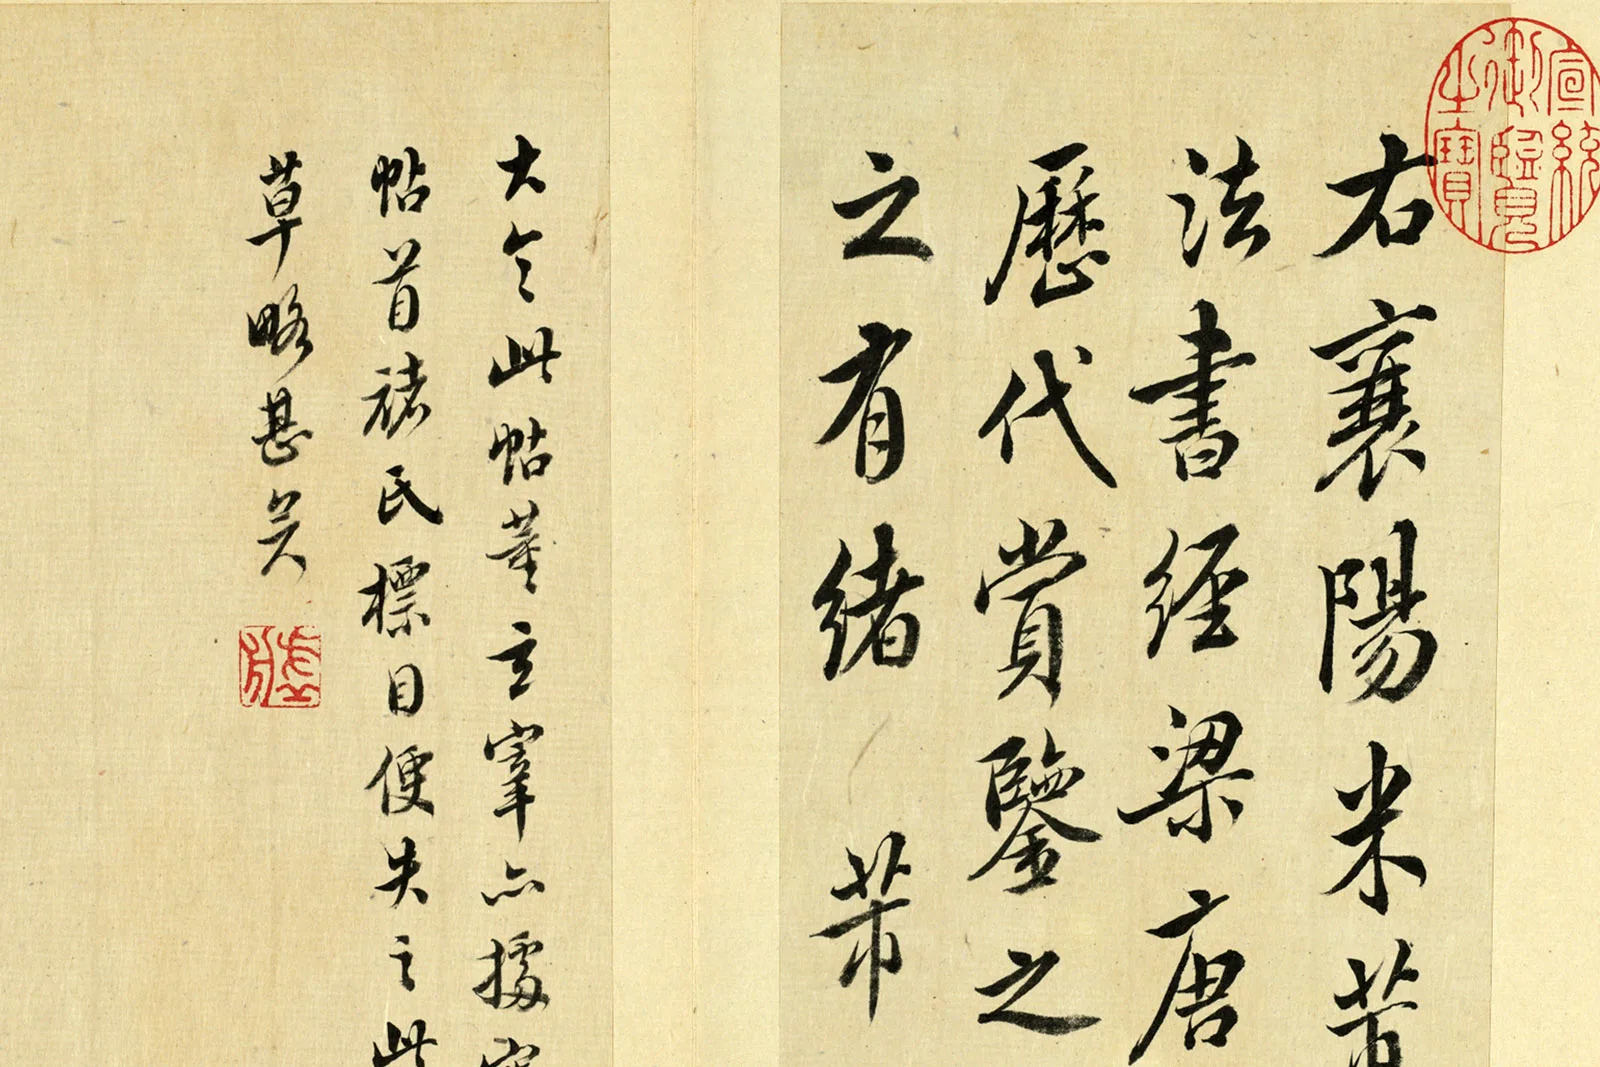 宣統御覽之寶
右襄陽米芾
法書經梁唐
歷代賞鑒之
之有緒 芾
大令此帖董玄宰亦據
帖首褚氏標目便失之此
草略甚矣